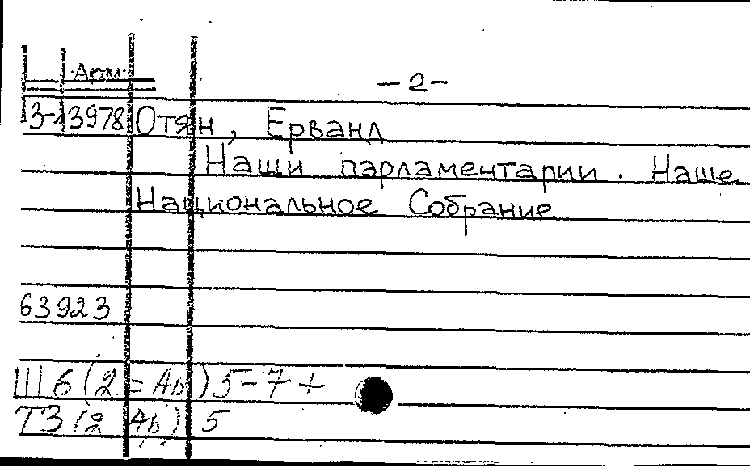 Арм. - 2 -
13-13978 Отян, Ерванд
Наши парламентарии. Наше
Национальное Собрание
63923
Ш6(2=Ар)5-7+
ТЗ(2 Ар) 5